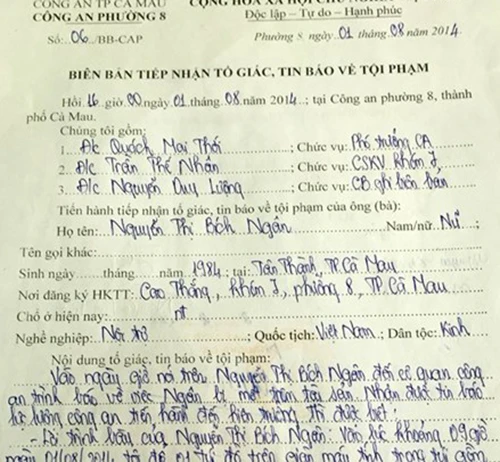 CÔNG AN TP CÀ MAU
CÔNG AN PHƯỜNG 8
Độc lập – Tự do – Hạnh phúc
Số: 06 /BB-CAP
Phường 8, ngày 01 tháng 08 năm 2014.
BIÊN BẢN TIẾP NHẬN TỐ GIÁC, TIN BÁO VỀ TỘI PHẠM
Hồi 16 giờ 00 ngày 01 tháng 08 năm 2014; tại Công an phường 8, thành
phố Cà Mau.
Chúng tôi gồm:
1. Đ/c Quách Mai Thới ; Chức vụ: Phó trưởng CA
2. Đ/c Trần Thế Nhân ; Chức vụ: CSKV Khóm 7,
3. Đ/c Nguyễn Duy Lượng ; Chức vụ: CB ghi biên bản
Tiến hành tiếp nhận tố giác, tin báo về tội phạm của ông (bà):
Họ tên: Nguyễn Thị Bích Ngân Nam/nữ: Nữ ;
Tên gọi khác:
Sinh ngày tháng năm 1984; tại: Tân Thành, TP. Cà Mau
Nơi đăng ký HKTT: Cao Thắng, Khóm 7, phường 8, TP. Cà Mau
Chỗ ở hiện nay: nt
Nghề nghiệp: Nội trợ ; Quốc tịch: Việt Nam ; Dân tộc: Kinh
Nội dung tố giác, tin báo về tội phạm:
Vào ngày giờ nói trên Nguyễn Thị Bích Ngân đến cơ quan công
an trình báo về việc Ngân bị mất trộm tài sản. Nhận được tin báo
lực lượng công an tiến hành đến hiện trường thì được biết:
- Lời trình bày của Nguyễn Thị Bích Ngân: Vào lúc khoảng 09 giờ
01/08/2014